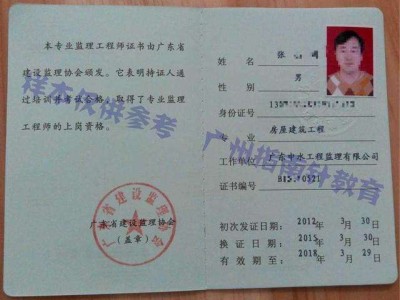 本专业监理工程师证书由广东省
建设监理协会颁发。它表明持证人通
过培训并考试合格，取得了专业监理
工程师的上岗资格。
样本仅供参考
广东省建设监理协会
广东省建设监理协会
（盖章）
姓名 张
性别 男
身份证号
专业 房屋建筑工程
工作单位 广东中水工程监理有限公司
证书编号
广州指南针教育
初次发证日期：2012年 3月 30日
换证日期：2015年 3月 30日
有效期至：2018年 3月 29日